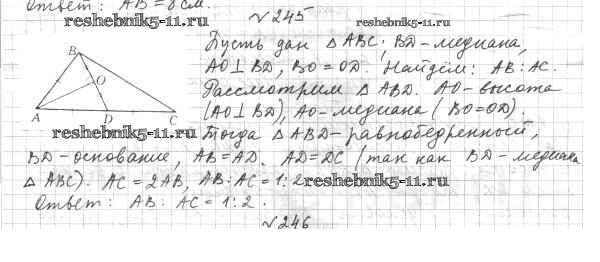 Ответ: AB = 8 см.
№245
reshebnik5-11.ru
reshebnik5-11.ru
Пусть дан △ABC; BD-медиана,
AO⊥BD, BO=OD. Найдём: AB:AC.
Рассмотрим △ABD. AO-высота
(AO⊥BD), AO-медиана (BO=OD).
B
O
A
D
C
reshebnik5-11.ru
Тогда △ABD-равнобедренный,
BD-основание, AB=AD. AD=DC (так как BD-медиана
△ABC). AC=2AB, AB:AC=1:2
reshebnik5-11.ru
Ответ: AB:AC=1:2.
№246